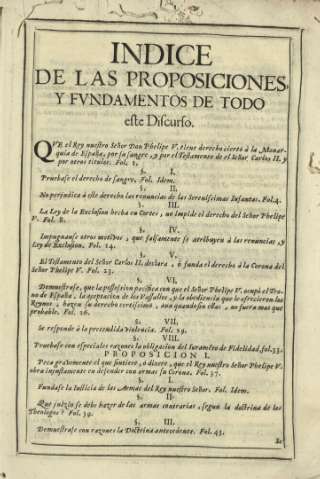 INDICE
DE LAS PROPOSICIONES,
Y FVNDAMENTOS DE TODO
este Discurso.
QVE el Rey nuestro Señor Don Phelipe V. tiene derecho cierto à la Monar-
quia de España, por su sangre, y por el Testamento de el Señor Carlos II. y
por otros titulos. Fol. 1.
§. I.
Pruebase el derecho de sangre. Fol. Idem.
§. II.
No perjudica à este derecho las renuncias de las Serenissimas Infantas. Fol.4.
§. III.
La Ley de la Exclusion hecha en Cortes, no impide el derecho del Señor Phelipe
V. Fol. 8.
§. IV.
Impugnanse otros motivos, que falsamente se atribuyen à las renuncias, y
Ley de Exclusion. Fol. 14.
§. V.
El Testamento del Señor Carlos II. declara, ò funda el derecho à la Corona del
Señor Phelipe V. Fol. 23.
§. VI.
Demuestrase, que la possession pacifica con que el Señor Phelipe V. ocupò el Tro-
no de España, la aceptacion de los Vassallos, y la obediencia que le ofrecieron los
Reynos, hazen su derecho certissimo, aun quando en ellas, no fuera mas que
probable. Fol. 26.
§. VII.
Se responde à la pretendida violencia. Fol. 29.
§. VIII.
Pruebase con especiales razones la obligacion del Iuramento de Fidelidad, fol.33.
PROPOSICION I.
Peca gravemente el que sintiere, ò dixere, que el Rey nuestro Señor Phelipe V.
obra injustamente en defender con armas su Corona. Fol. 37.
§. I.
Fundase la Iusticia de las Armas del Rey nuestro Señor. Fol. Idem.
§. II.
Que juizio se debe hazer de las armas contrarias, segun la doctrina de los
Theologos? Fol. 39.
§. III.
Demuestrase con razones la Doctrina antecedente. Fol. 43.